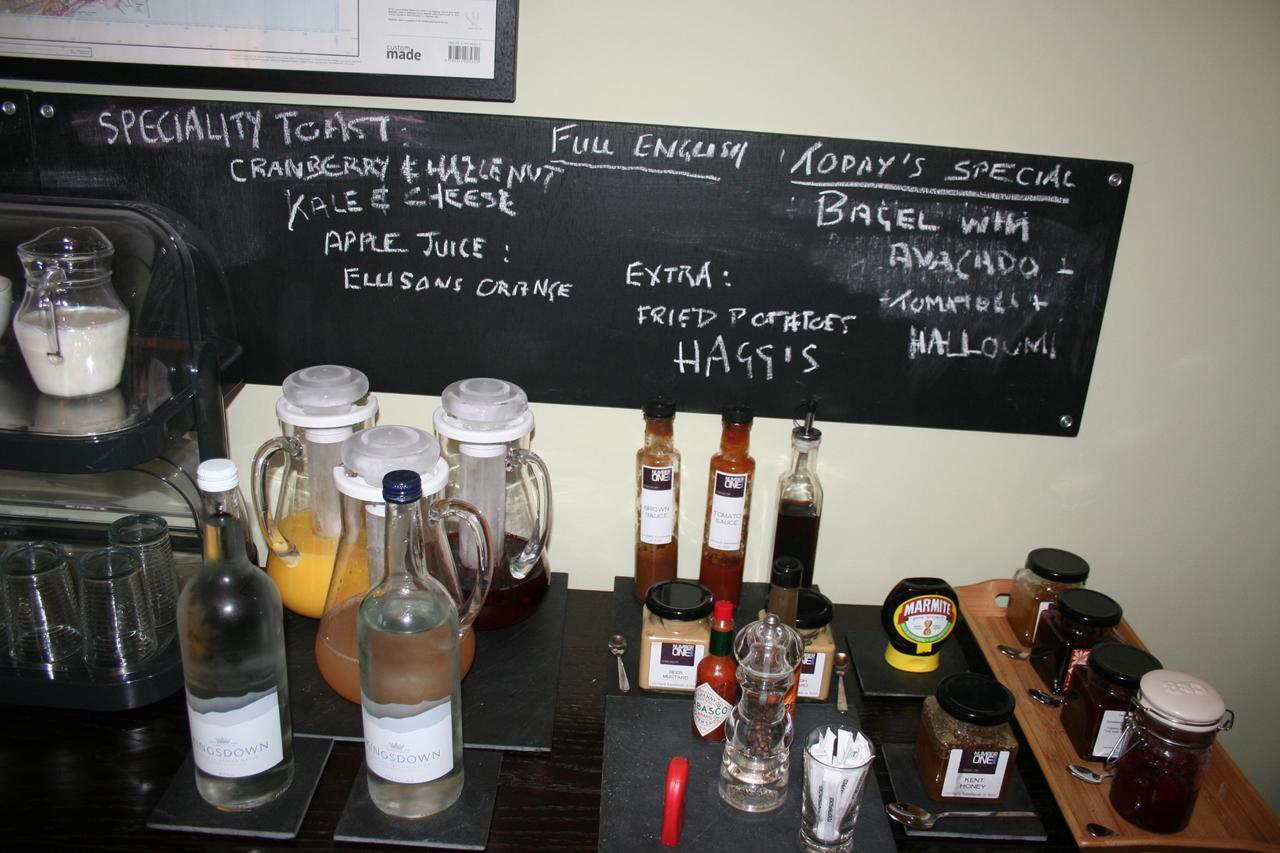 custom
made
SPECIALITY TOAST:
CRANBERRY & HAZLENUT
KALE & CHEESE
APPLE JUICE:
ELLISONS ORANGE
FULL ENGLISH
EXTRA:
FRIED POTATOES
HAGGIS
TODAY'S SPECIAL
BAGEL WITH
AVACADO +
TOMATOES +
HALLOUMI
NUMBER
ONE
BROWN
SAUCE
NUMBER
ONE
TOMATO
SAUCE
KINGSDOWN
KINGSDOWN
NUMBER
ONE
MUSTARD
TABASCO
MARMITE
NUMBER
ONE
KENT
HONEY